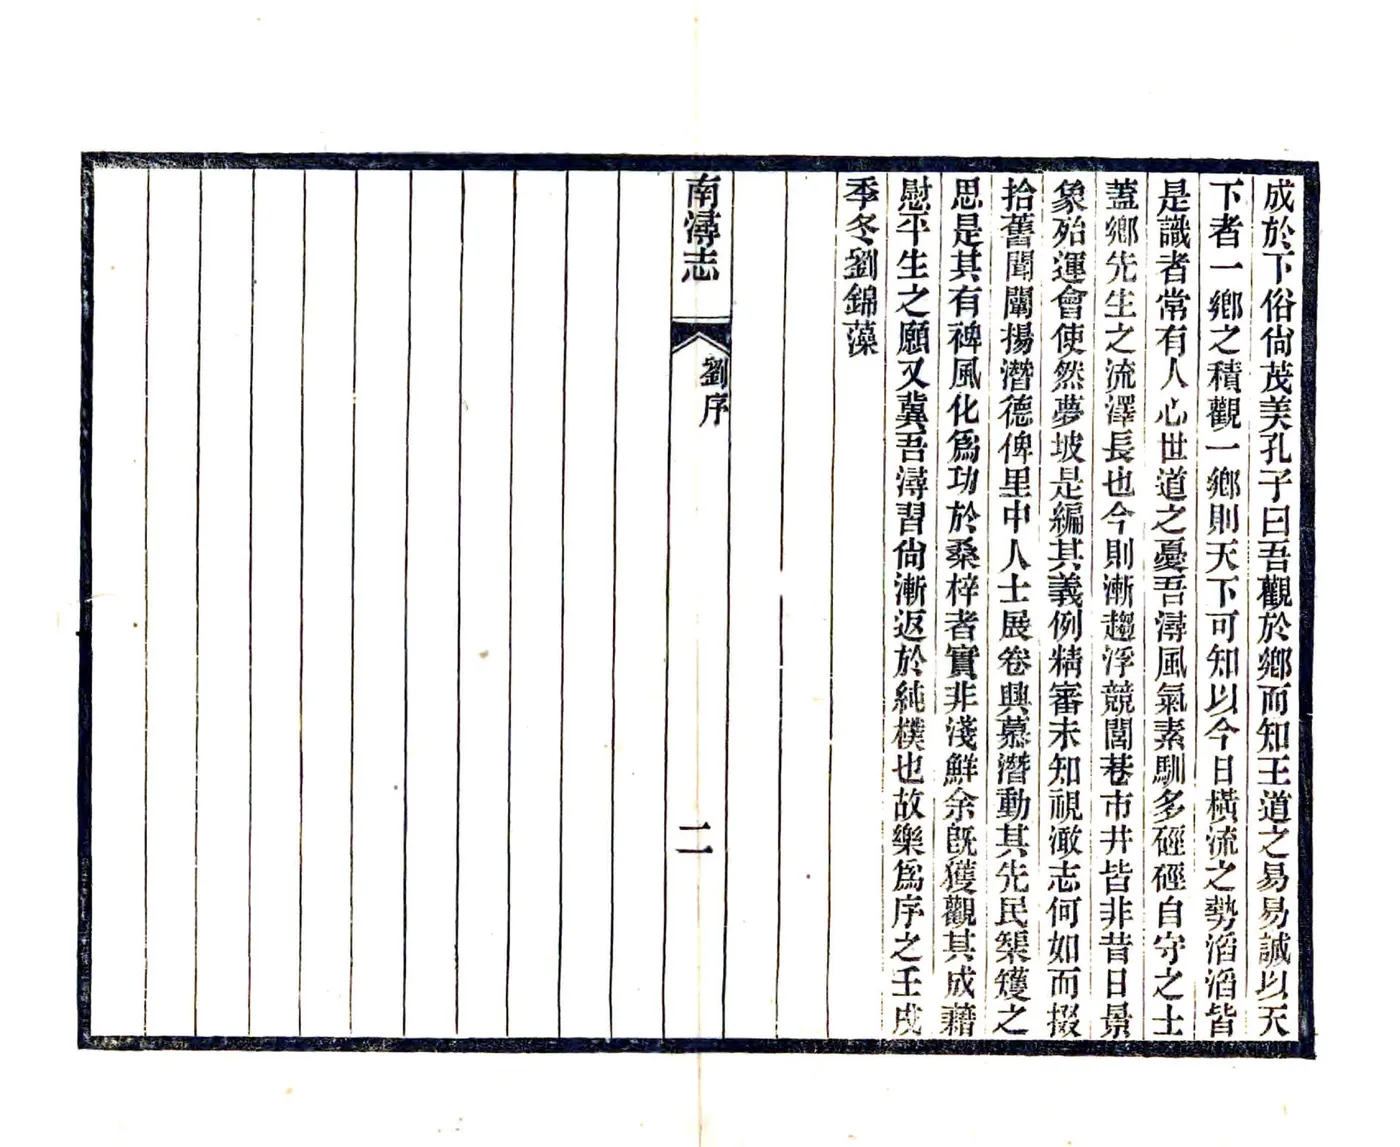 成於下俗尙茂美孔子曰吾觀於鄉而知王道之易易誠以天
下者一鄉之積觀一鄉則天下可知以今日橫流之勢滔滔皆
是識者常有人心世道之憂吾潯風氣素馴多硜硜自守之士
蓋鄉先生之流澤長也今則漸趨浮競閭巷市井皆非昔日景
象殆運會使然夢坡是編其義例精審未知視澉志何如而掇
拾舊聞闡揚潛德俾里中人士展卷興慕潛動其先民榘矱之
思是其有裨風化爲功於桑梓者實非淺鮮余旣獲觀其成藉
慰平生之願又冀吾潯習尙漸返於純樸也故樂爲序之壬戌
季冬劉錦藻
南潯志
劉序
二